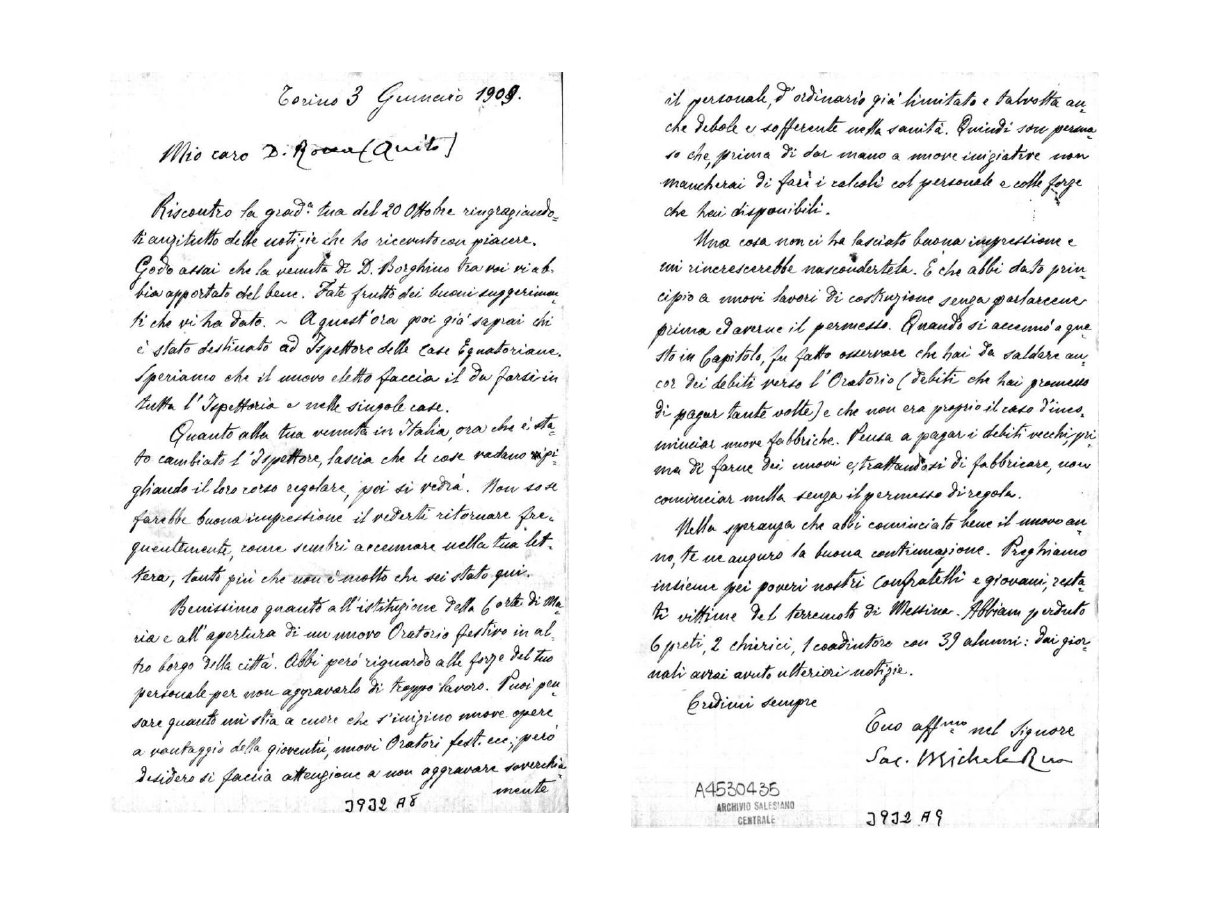 Torino 3 Gennaio 1909.
Mio caro D. Rocca (Quito)
Riscontro la grad.ª tua del 20 Ottobre ringraziando=
ti anzitutto delle notizie che ho ricevuto con piacere.
Godo assai che la venuta di D. Borghino tra voi vi ab=
bia apportato del bene. Fate frutto dei buoni suggerimen=
ti che vi ha dato. ~ A quest'ora poi già saprai chi
è stato destinato ad Ispettore delle Case Equatoriane.
Speriamo che il nuovo eletto faccia il da farsi in
tutta l'Ispettoria e nelle singole case.
Quanto alla tua venuta in Italia, ora che è sta=
to cambiato l'Ispettore, lascia che le cose vadano ripi=
gliando il loro corso regolare, poi si vedrà. Non so se
farebbe buona impressione il vederti ritornare fre=
quentemente, come sembri accennare nella tua let=
tera, tanto più che non è molto che sei stato qui.
Benissimo quanto all'istituzione della Corte di Ma=
ria e all'apertura di un nuovo Oratorio festivo in al=
tro borgo della città. Abbi però riguardo alle forze del tuo
personale per non aggravarlo di troppo lavoro. Puoi pen=
sare quanto mi stia a cuore che s'inizino nuove opere
a vantaggio della gioventù, nuovi Oratori fest. ecc; però
desidero si faccia attenzione a non aggravare soverchia=
mente
J9J2 A8
il personale, d'ordinario già limitato e talvolta an=
che debole e sofferente nella sanità. Quindi son persua=
so che, prima di dar mano a nuove iniziative non
mancherai di fare i calcoli col personale e colle forze
che hai disponibili.
Una cosa non ci ha lasciato buona impressione e
mi rincrescerebbe nascondertela. È che abbi dato prin=
cipio a nuovi lavori di costruzione senza parlarcene
prima ed averne il permesso. Quando si accennò a que=
sto in Capitolo, fu fatto osservare che hai da saldare an=
cor dei debiti verso l'Oratorio (debiti che hai promesso
di pagar tante volte) e che non era proprio il caso d'inco=
minciar nuove fabbriche. Pensa a pagar i debiti vecchi, pri=
ma di farne dei nuovi e, trattandosi di fabbricare, non
cominciar nulla senza il permesso di regola.
Nella speranza che abbi cominciato bene il nuovo an=
no, te ne auguro la buona continuazione. Preghiamo
insieme pei poveri nostri Confratelli e giovani, resta=
ti vittime del terremoto di Messina. Abbiam perduto
6 preti, 2 chierici, 1 coadiutore con 39 alunni: dai gior=
nali avrai avuto ulteriori notizie.
Credimi sempre
Tuo aff.mo nel Signore
Sac. Michele Rua
A4530435
ARCHIVIO SALESIANO
CENTRALE
J9J2 A9